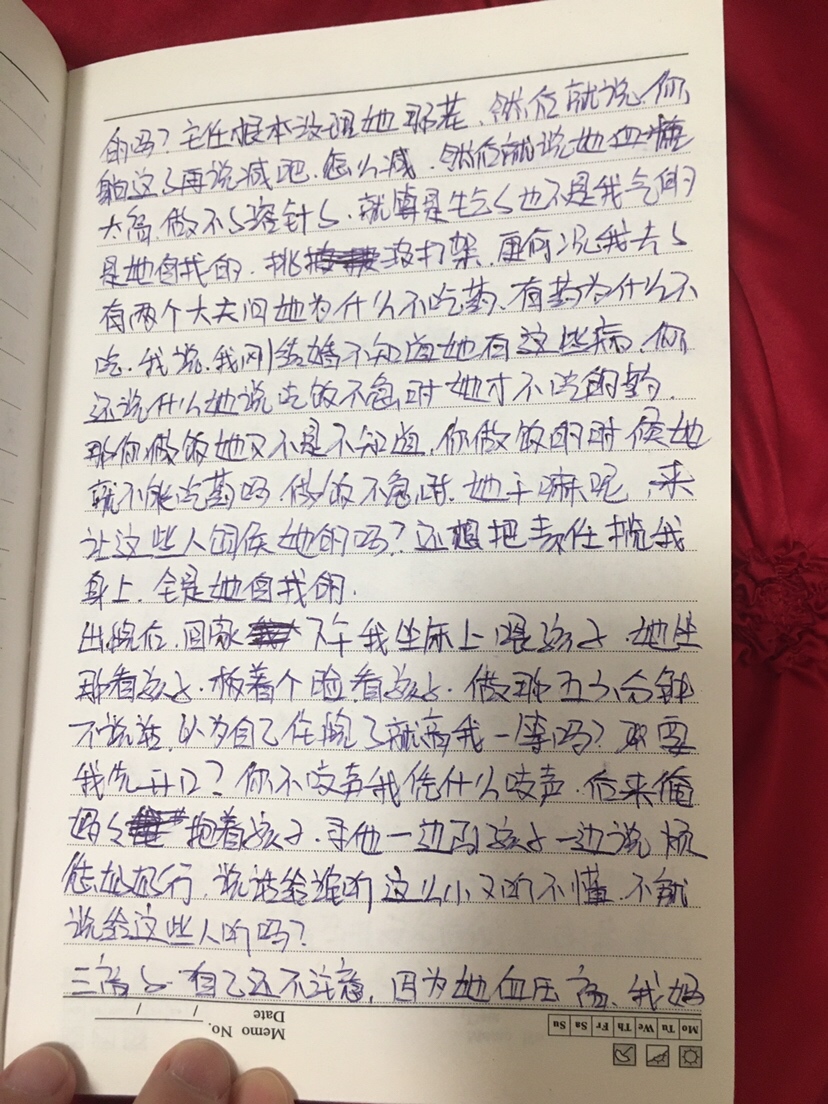 的吗？主任根本没理她那茬、然后就说、你
躺这了再说减吧、怎么减、然后就说她血糖
太高、做不了溶针了、就算是生气了也不是我气的
是她自找的、挑 没打架、更何况我去了
有两个大夫问她为什么不吃药、有药为什么不
吃、我说、我刚结婚不知道她有这些病、你
还说什么她说吃饭不急时她才不吃的药、
那你做饭她又不是不知道、你做饭的时候她
就不能吃药吗 做饭不急时、她干嘛呢、来
让这些人伺候她的吗？还想把责任揽我
身上、全是她自找的、
出院后、回家 下午我坐床上喂孩子、她坐
那看孩子、板着个脸、看孩子、做那五六分钟
不说话、以为自己住院了就高我一等吗？还要
我先开口？你不吱声我凭什么吱声、后来俺
妈 抱着孩子、寻他一边 孩子一边说
说话给谁听 这么小又听不懂、不就
说给这些人听吗？
三高了、自己还不注意、因为她血压高、我妈
Memo No.
Date / /
Mo Tu We Th Fr Sa Su